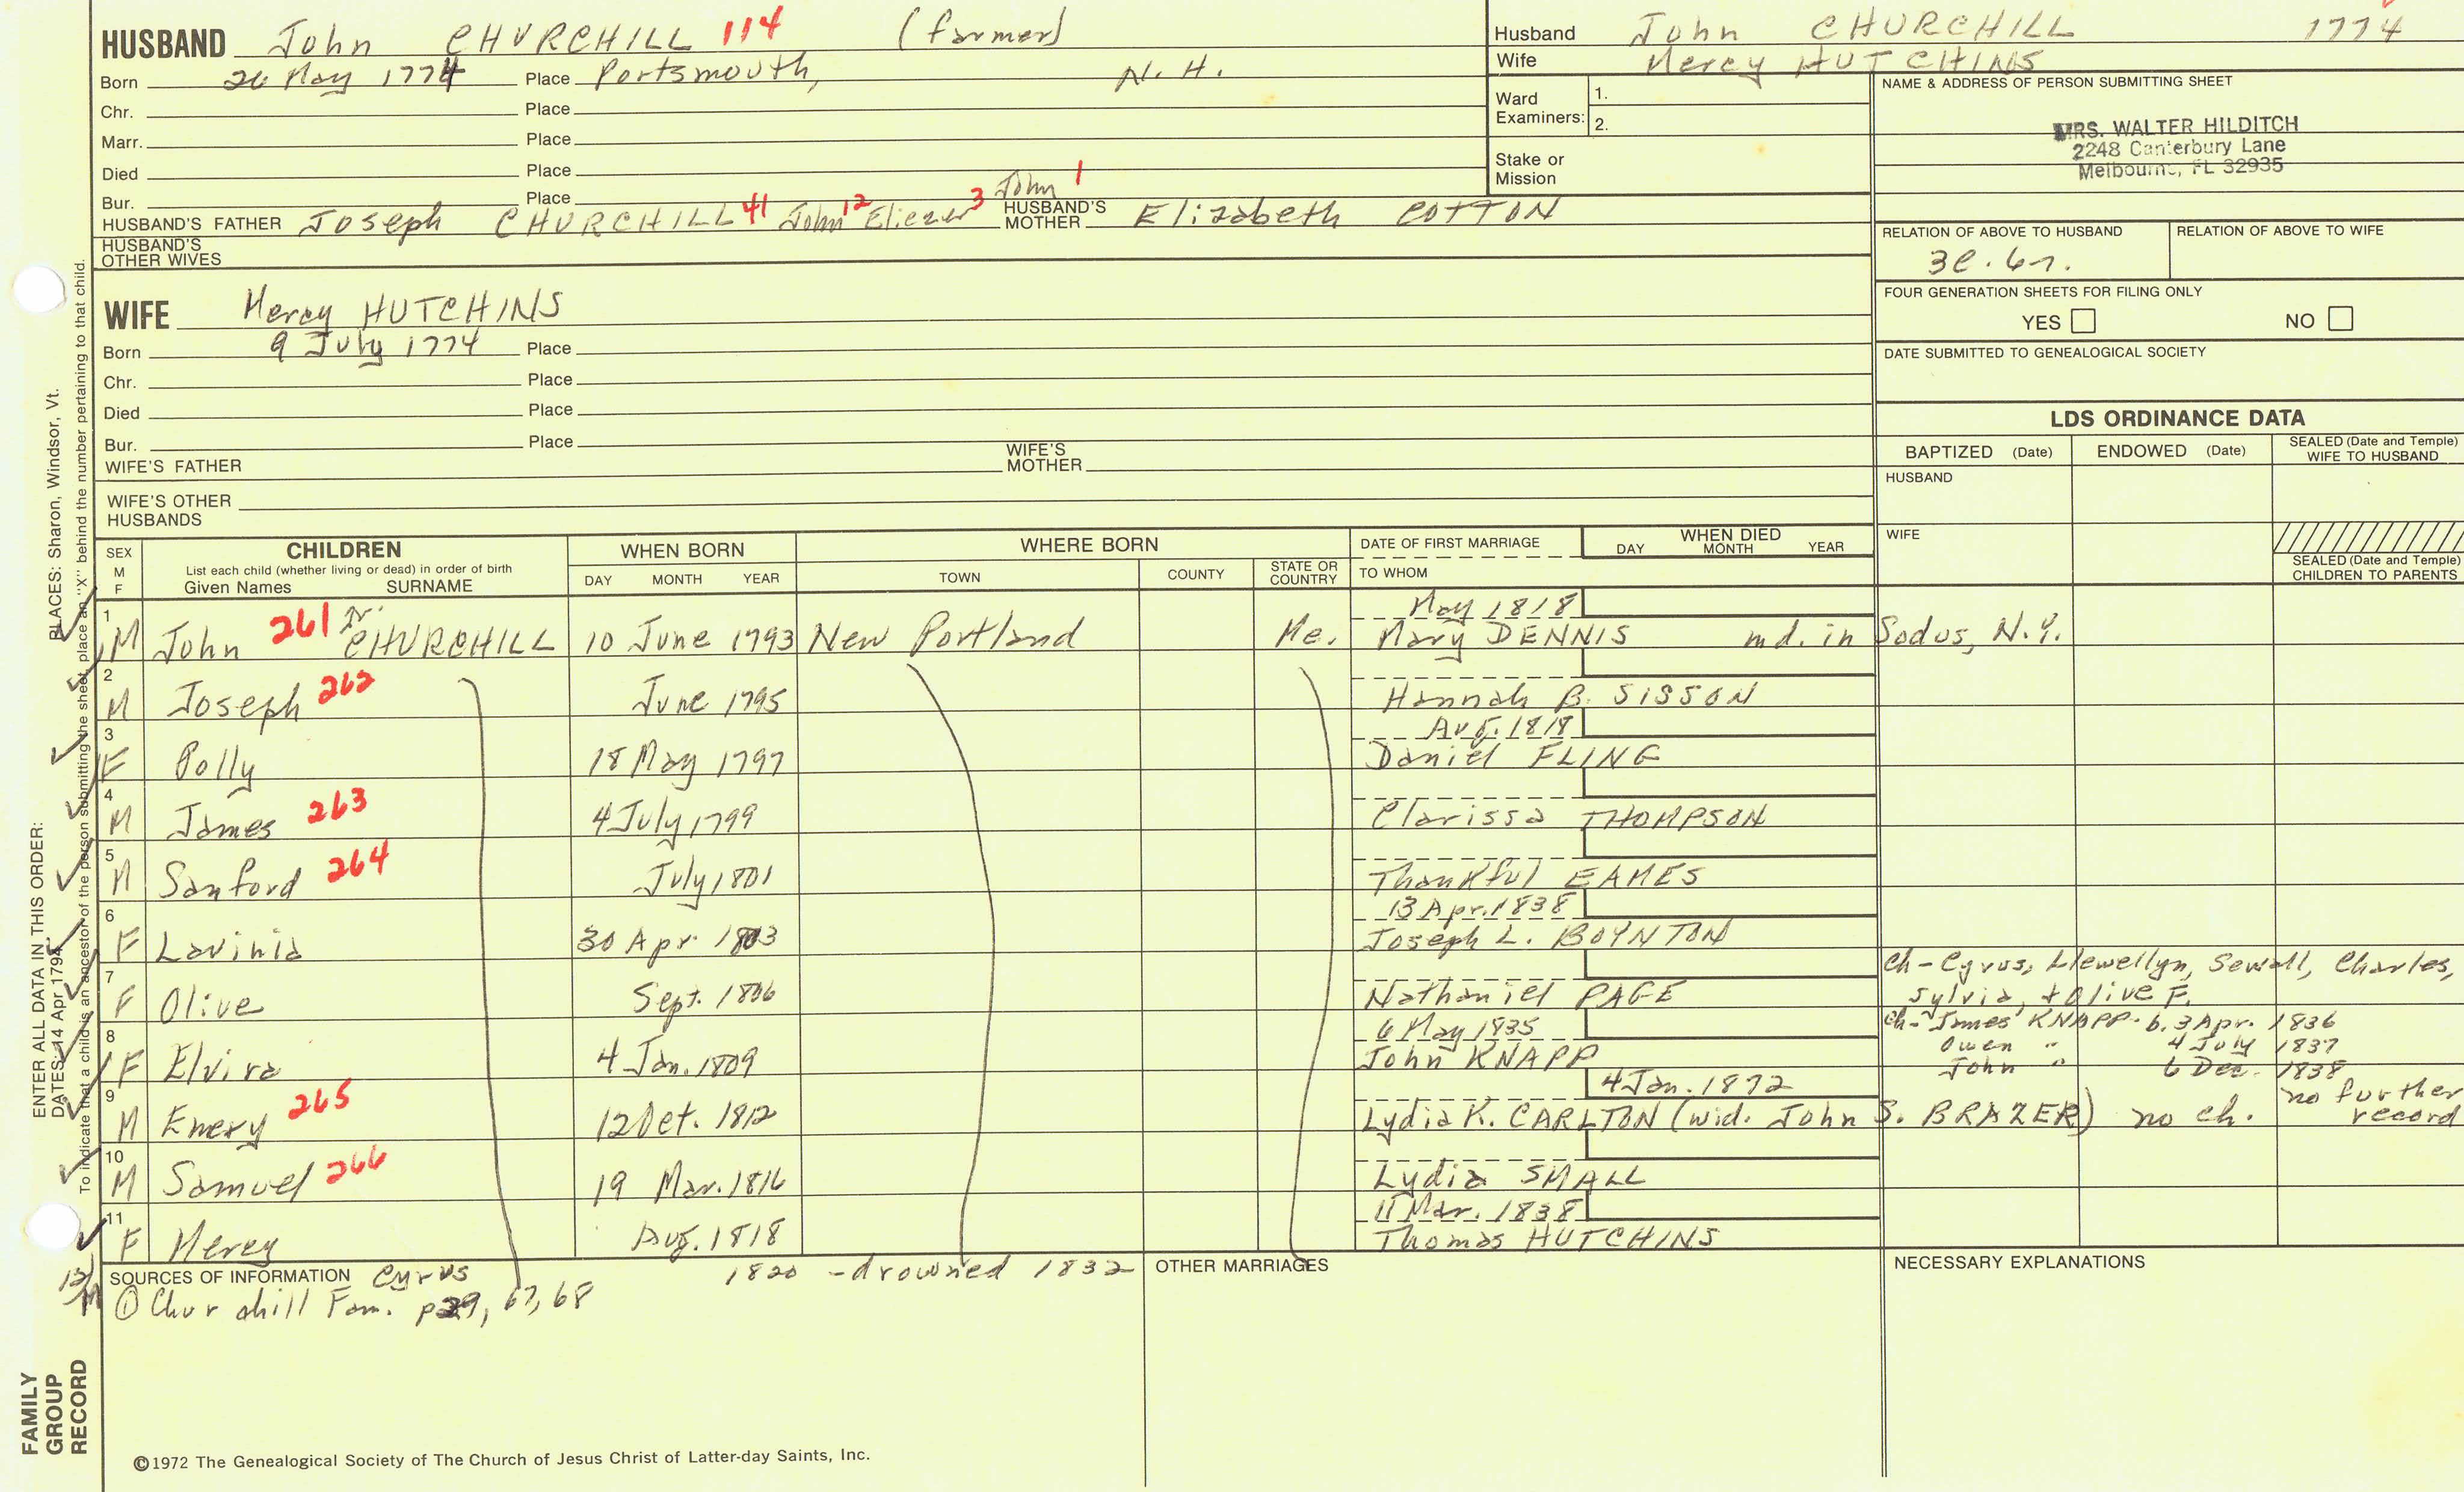 HUSBAND John CHURCHILL 114 (farmer)
Born 26 May 1774 Place Portsmouth, N. H.
Chr. Place
Marr. Place
Died Place
Bur. Place
HUSBAND'S FATHER Joseph CHURCHILL 41 John 12 Eliezer 3 John 1 HUSBAND'S MOTHER Elizabeth COTTON
HUSBAND'S OTHER WIVES
Husband John CHURCHILL 1774
Wife Mercy HUTCHINS
Ward Examiners: 1.
2.
Stake or Mission
NAME & ADDRESS OF PERSON SUBMITTING SHEET
MRS. WALTER HILDITCH
2248 Canterbury Lane
Melbourne, FL 32935
RELATION OF ABOVE TO HUSBAND RELATION OF ABOVE TO WIFE
FOUR GENERATION SHEETS FOR FILING ONLY
YES NO
DATE SUBMITTED TO GENEALOGICAL SOCIETY
WIFE Mercy HUTCHINS
Born 9 July 1774 Place
Chr. Place
Died Place
Bur. Place
WIFE'S FATHER WIFE'S MOTHER
WIFE'S OTHER HUSBANDS
LDS ORDINANCE DATA
BAPTIZED (Date) ENDOWED (Date) SEALED (Date and Temple) WIFE TO HUSBAND
HUSBAND
WIFE
SEALED (Date and Temple) CHILDREN TO PARENTS
SEX M F CHILDREN List each child (whether living or dead) in order of birth Given Names SURNAME
WHEN BORN DAY MONTH YEAR
WHERE BORN TOWN COUNTY STATE OR COUNTRY
DATE OF FIRST MARRIAGE TO WHOM
WHEN DIED DAY MONTH YEAR
May 1818
1 M John 261 Jr. CHURCHILL 10 June 1793 New Portland Me. Mary DENNIS md. in Sodus, N.Y.
2 M Joseph 262 June 1795 Hannah B. SISSON
Aug. 1818
3 F Polly 18 May 1797 Daniel FLING
4 M James 263 4 July 1799 Clarissa THOMPSON
5 M Sanford 264 July 1801 Thankful EAMES
13 Apr. 1838
6 F Lavinia 30 Apr. 1803 Joseph L. BOYNTON
7 F Olive Sept. 1806 Nathaniel PAGE ch - Cyrus, Llewellyn, Sewall, Charles, Sylvia, + Olive F.
6 May 1835
8 F Elvira 4 Jan. 1809 John KNAPP ch - James KNAPP b. 3 Apr. 1836
Owen " 4 July 1837
John " 6 Dec. 1838
4 Jan. 1872
9 M Emery 265 12 Oct. 1812 Lydia K. CARLTON (wid. John S. BRAZER) no ch. no further record
10 M Samuel 266 19 Mar. 1816 Lydia SMALL
11 Mar. 1838
11 F Mercy Aug. 1818 Thomas HUTCHINS
12 M Cyrus 1820 - drowned 1832
SOURCES OF INFORMATION
① Churchill Fam. p 29, 67, 68
OTHER MARRIAGES
NECESSARY EXPLANATIONS
ENTER ALL DATA IN THIS ORDER:
DATES: 14 Apr 1794. PLACES: Sharon, Windsor, Vt.
To indicate that a child is an ancestor of the person submitting the sheet, place an "X" behind the number pertaining to that child.
FAMILY
GROUP
RECORD
©1972 The Genealogical Society of The Church of Jesus Christ of Latter-day Saints, Inc.